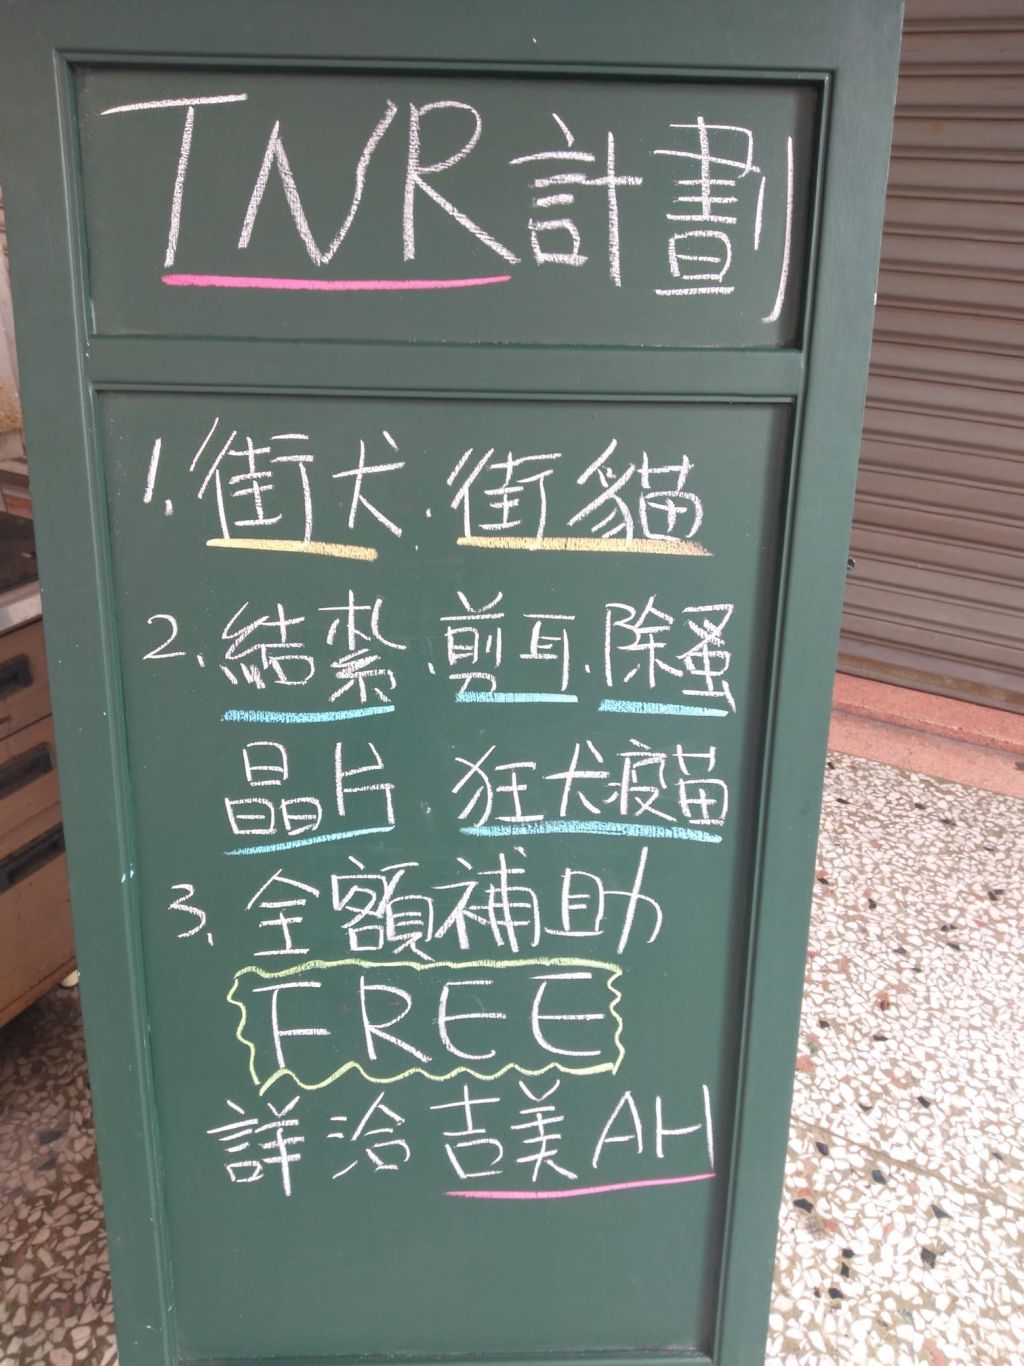 TNR計劃
1.街犬.街貓
2.結紮.剪耳.除蚤
晶片 狂犬疫苗
3.全額補助
FREE
詳洽吉美AH